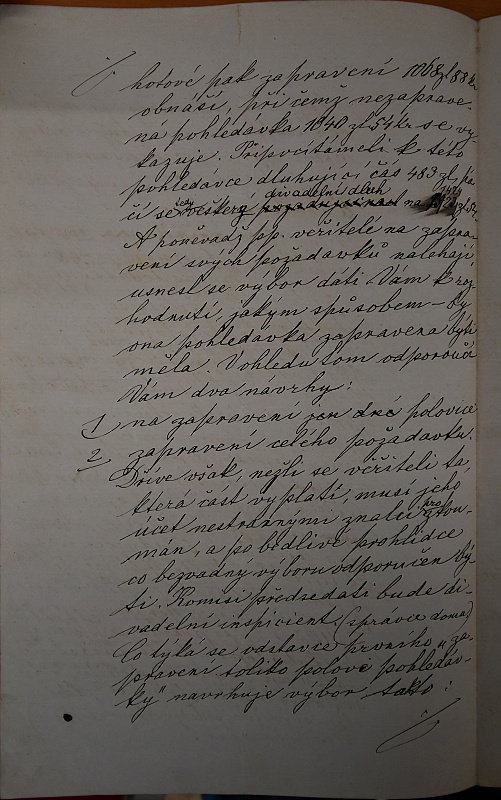 hotové pak zapravení 1068 zl 88 kr
obnáší, při čemž nezaprave-
ná pohledávka 1040 zl 54 kr se vy-
kazuje. Připočítámeli k této
pohledávce dlužující čás 483 zl, pá
čí se tedy veškerý divadelní dluh na
A poněvadž pp. věřitelé na zapra-
vení svých požadavků naléhají,
usnesl se výbor dáti Vám k roz-
hodnutí, jakým spůsobem – by
ona pohledávka zapravena býti
měla. Vohledu tom odporoučí
Vám dva návrhy:
1 na zapravení jen dré polovice
2 zapravení celého požadavku.
Dříve však, nežli se věřiteli ta,
která část vyplatí, musí jeho
účet nestrannými znalci prozkou-
mán, a po bedlivé prohlídce
co bezvadný výboru odporučen bý-
ti. Komisi předsedati bude di-
vadelní inspicient (správce domu)
Co týká se odstavce prvního „za-
pravení toliko polové pohledáv-
ky" navrhuje výbor takto: